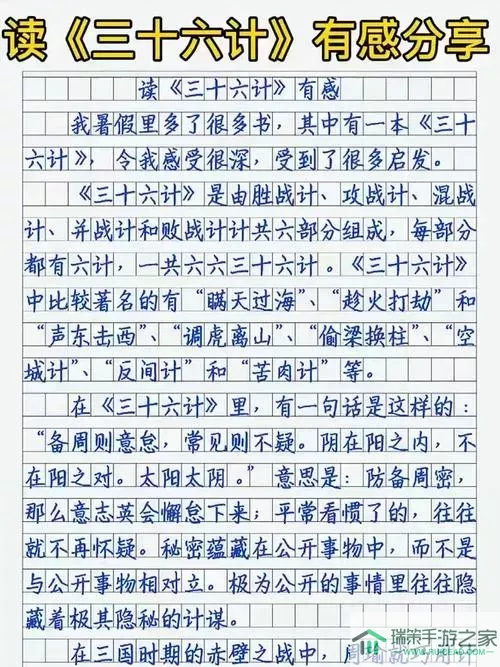 读《三十六计》有感分享
读《三十六计》有感
我暑假里多了很多书，其中有一本《三十
六计》，令我感受很深，受到了很多启发。
《三十六计》是由胜战计、攻战计、混战
计、并战计和败战计计共六部分组成，每部分
都有六计，一共六六三十六计。《三十六计》
中比较著名的有“瞒天过海”、“趁火打劫”和
“声东击西”、“调虎离山”、“偷梁换柱”、“空
城计”、“反间计”和“苦肉计”等。
在《三十六计》里，有一句话是这样的：
“备周则意怠，常见则不疑。阴在阳之内，不
在阳之对。太阳太阴。”意思是：防备周密，
那么意志英会懈怠下来；平常看惯了的，往往
就不再怀疑。秘密蕴藏在公开事物中，而不是
与公开事物相对立。极为公开的事情里往往隐
藏着极其隐秘的计谋。
在三国时期的赤壁之战中，周瑜就
瑞策手游之家
WWW.RUICEAD.COM